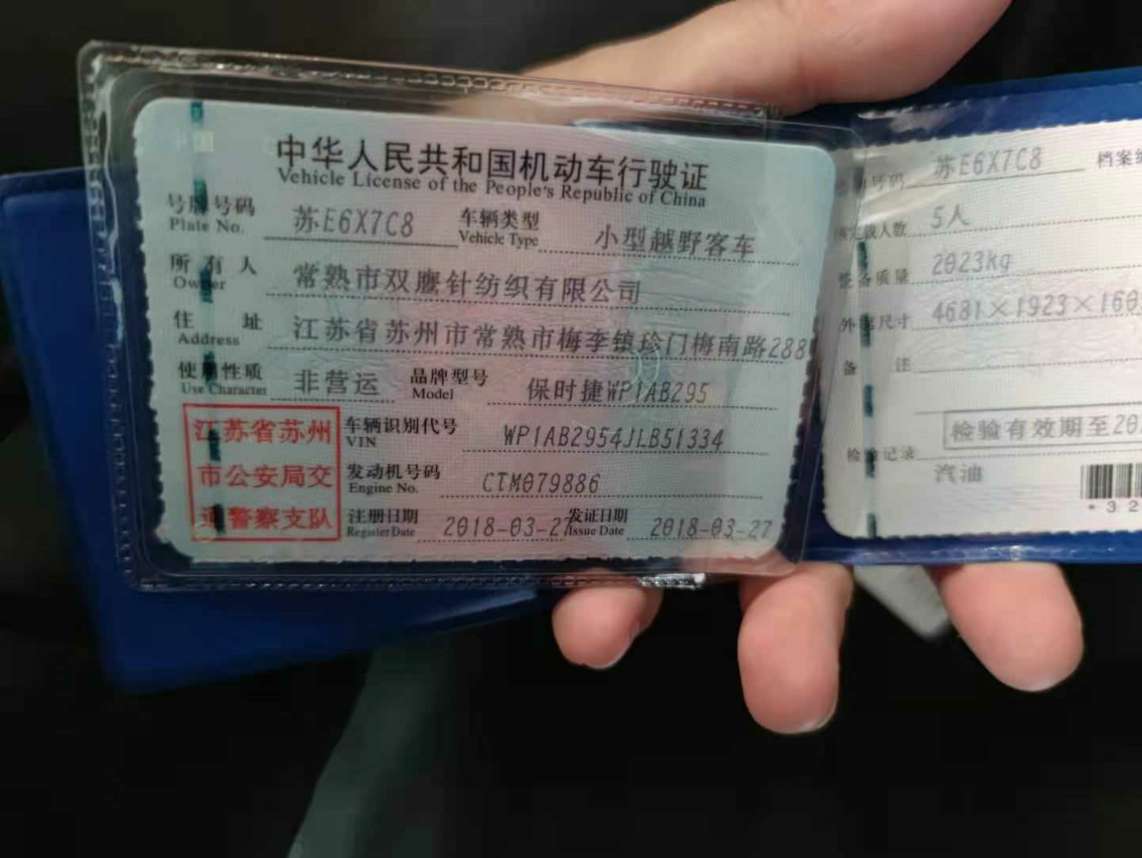 中华人民共和国机动车行驶证
Vehicle License of the People's Republic of China
号牌号码 苏E6X7C8 车辆类型 小型越野客车
Plate No. Vehicle Type
所有人 常熟市双鹰针纺织有限公司
Owner
住址 江苏省苏州市常熟市梅李镇珍门梅南路288
Address
使用性质 非营运 品牌型号 保时捷WP1AB295
Use Character Model
江苏省苏州
市公安局交
通警察支队
车辆识别代号 WP1AB2954JLB51334
VIN
发动机号码 CTM079886
Engine No.
注册日期 2018-03-27 发证日期 2018-03-27
Register Date Issue Date
号码 苏E6X7C8 档案
人数 5人
整备质量 2023kg
外廓尺寸 4681×1923×160
备注
检验有效期至20
检验记录
汽油
*32